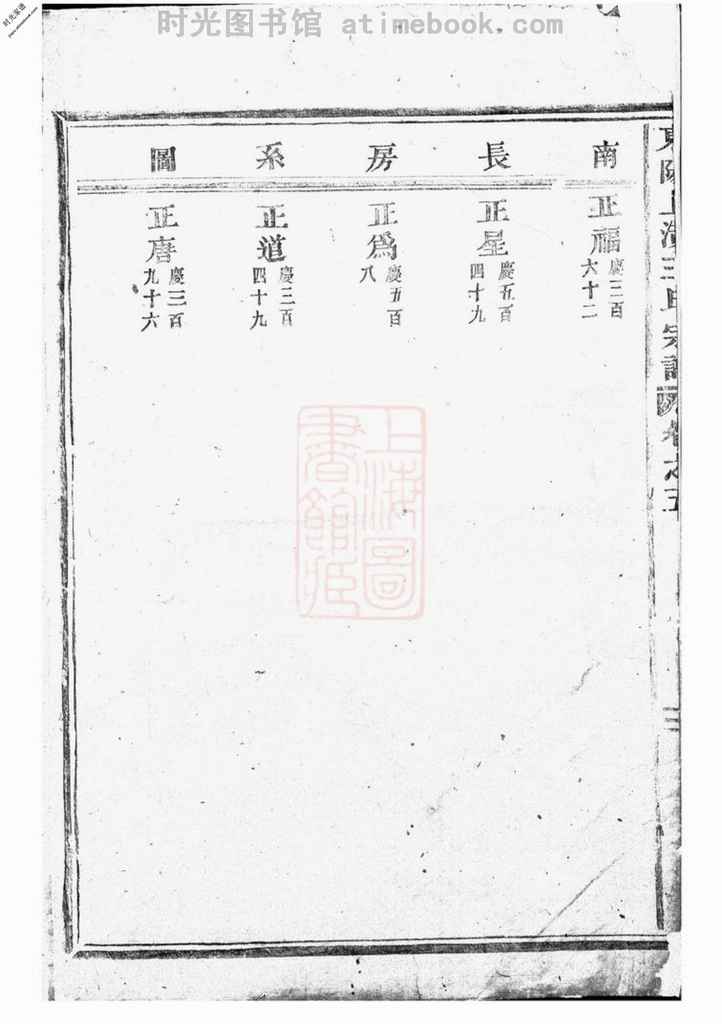 时光图书馆 atimebook.com
南長房系圖
正福
慶三百
六十二
正星
慶五百
四十九
正爲
慶五百
八
正道
慶三百
四十九
正唐
慶三百
九十六
上海圖
書館藏
宗譜
卷之五
二